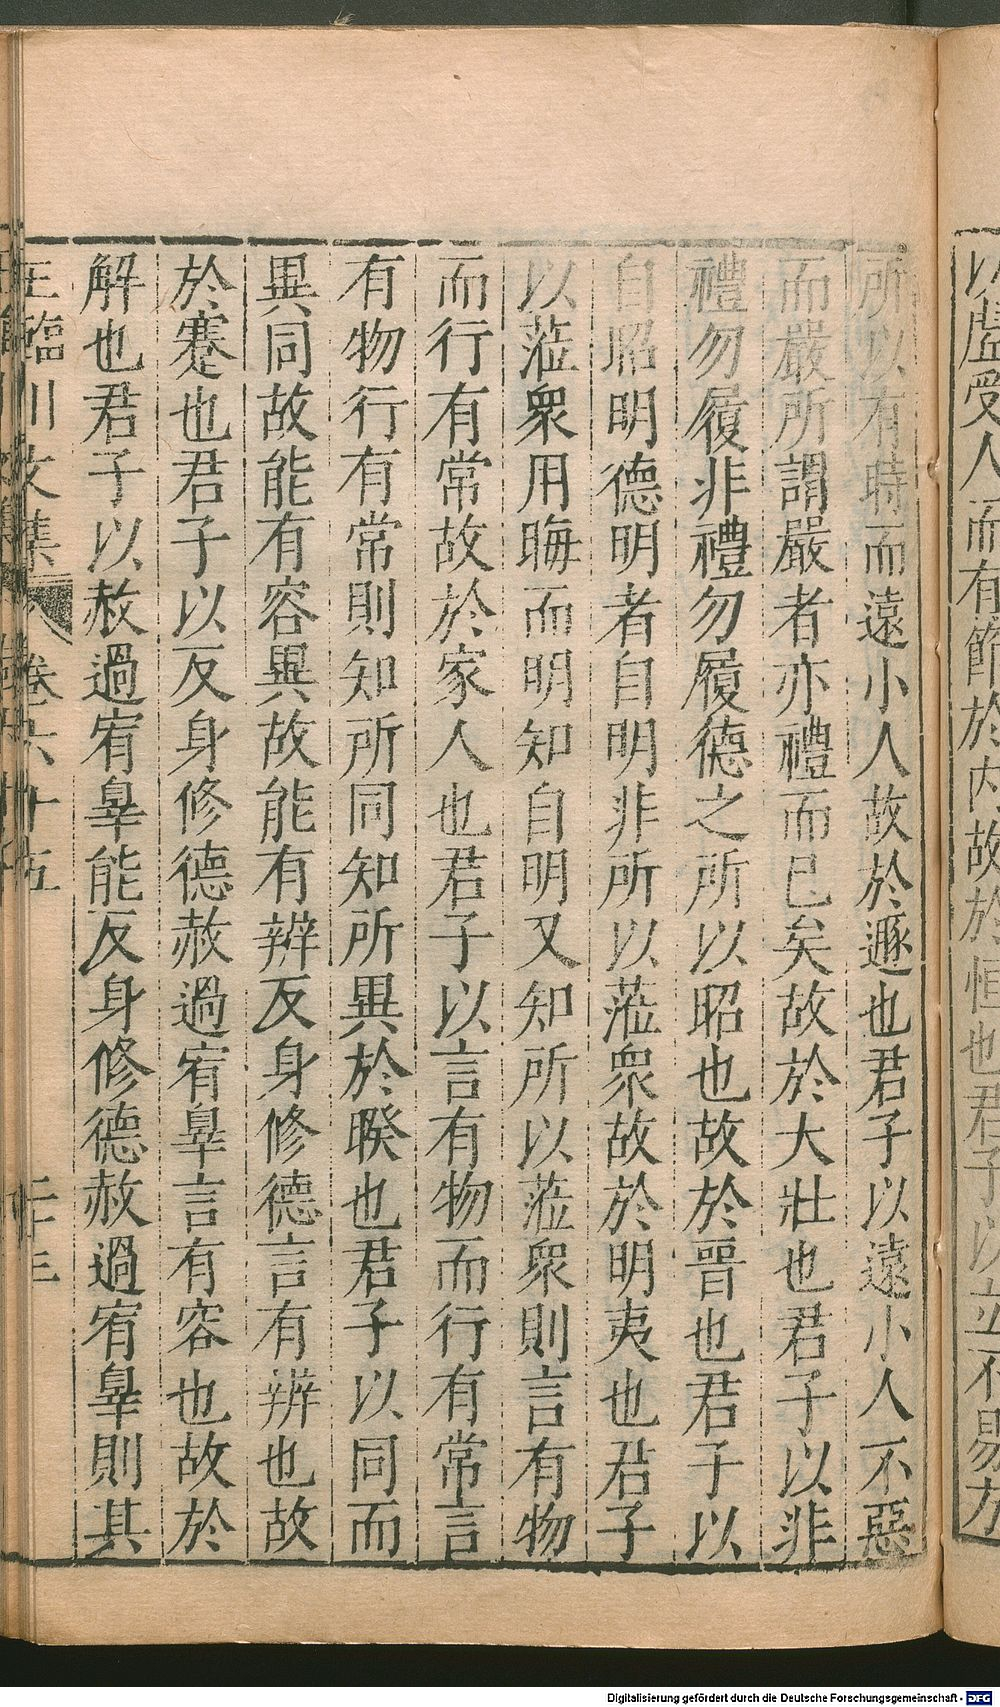 以虛受人而有節於内故於恒也君子以立不易方
所以有時而遠小人故於遯也君子以遠小人不惡
而嚴所謂嚴者亦禮而已矣故於大壯也君子以非
禮勿履非禮勿履德之所以昭也故於晉也君子以
自昭明德明者自明非所以蒞衆故於明夷也君子
以蒞衆用晦而明知自明又知所以蒞衆則言有物
而行有常故於家人也君子以言有物而行有常言
有物行有常則知所同知所異於睽也君子以同而
異同故能有容異故能有辨反身修德言有辨也故
於蹇也君子以反身修德赦過宥辠言有容也故於
解也君子以赦過宥辠能反身修德赦過宥辠則其
王臨川文集 卷六十五 二十三
Digitalisierung gefördert durch die Deutsche Forschungsgemeinschaft - DFG